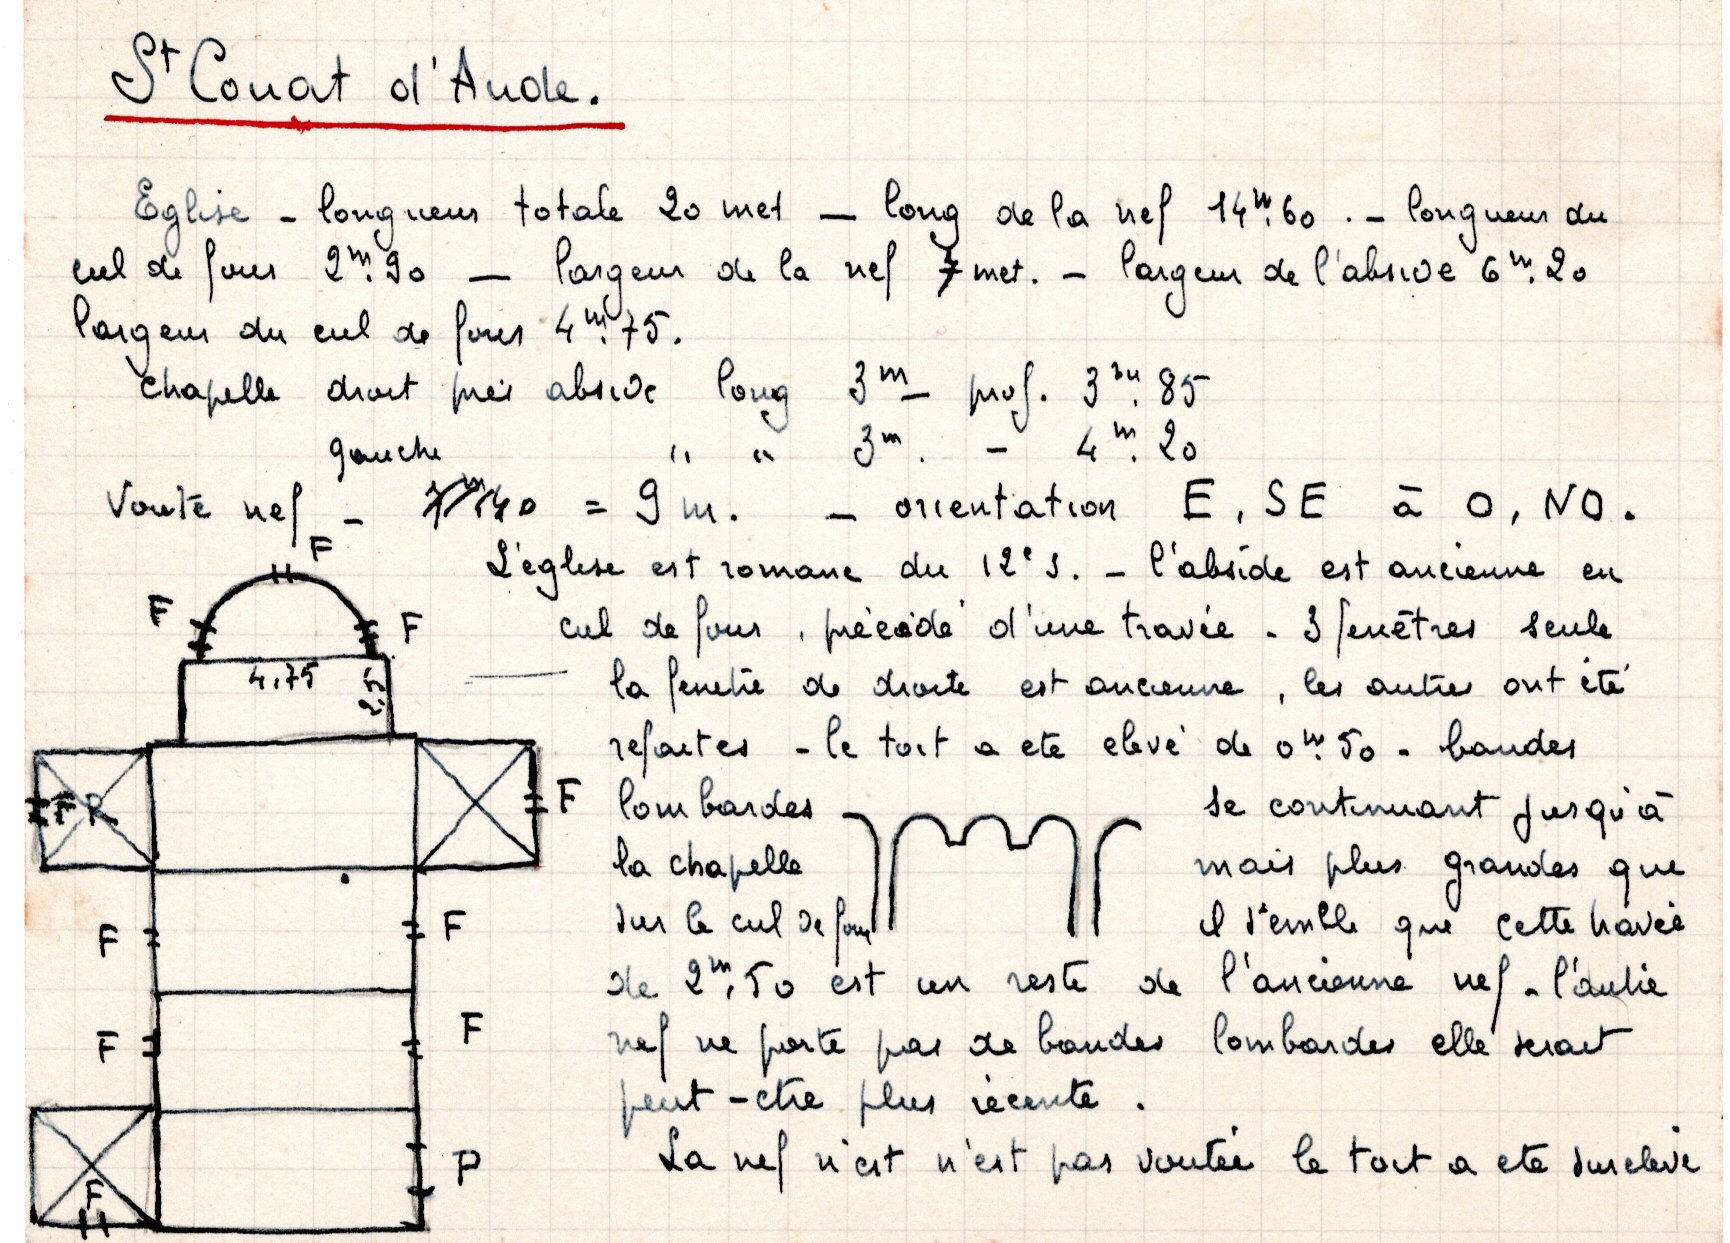 St Couat d'Aude.
Eglise - longueur totale 20 met - long de la nef 14m.60. - longueur du
cul de four 2m.90 - largeur de la nef 7 met. - largeur de l'abside 6m.20
largeur du cul de four 4m.75.
chapelle droit près abside long 3m - prof. 3m.85
gauche " " 3m. - 4m.20
Voute nef - = 9m. - orientation E, SE à O, NO.
L'église est romane du 12e s. - l'abside est ancienne en
cul de four, précédé d'une travée - 3 fenêtres seule
la fenetre de droite est ancienne, les autres ont été
refaites - le toit a ete elevé de 0m.50 - bandes
lombardes se continuant jusqu'à
la chapelle mais plus grandes que
sur le cul de four il semble que cette travée
de 2m,50 est un reste de l'ancienne nef - l'autre
nef ne porte pas de bandes lombardes elle serait
peut-etre plus récente.
La nef n'est n'est pas voutée le toit a ete surelevé
F
F
F
4,75
F P
F
F
F
F
F
P
F